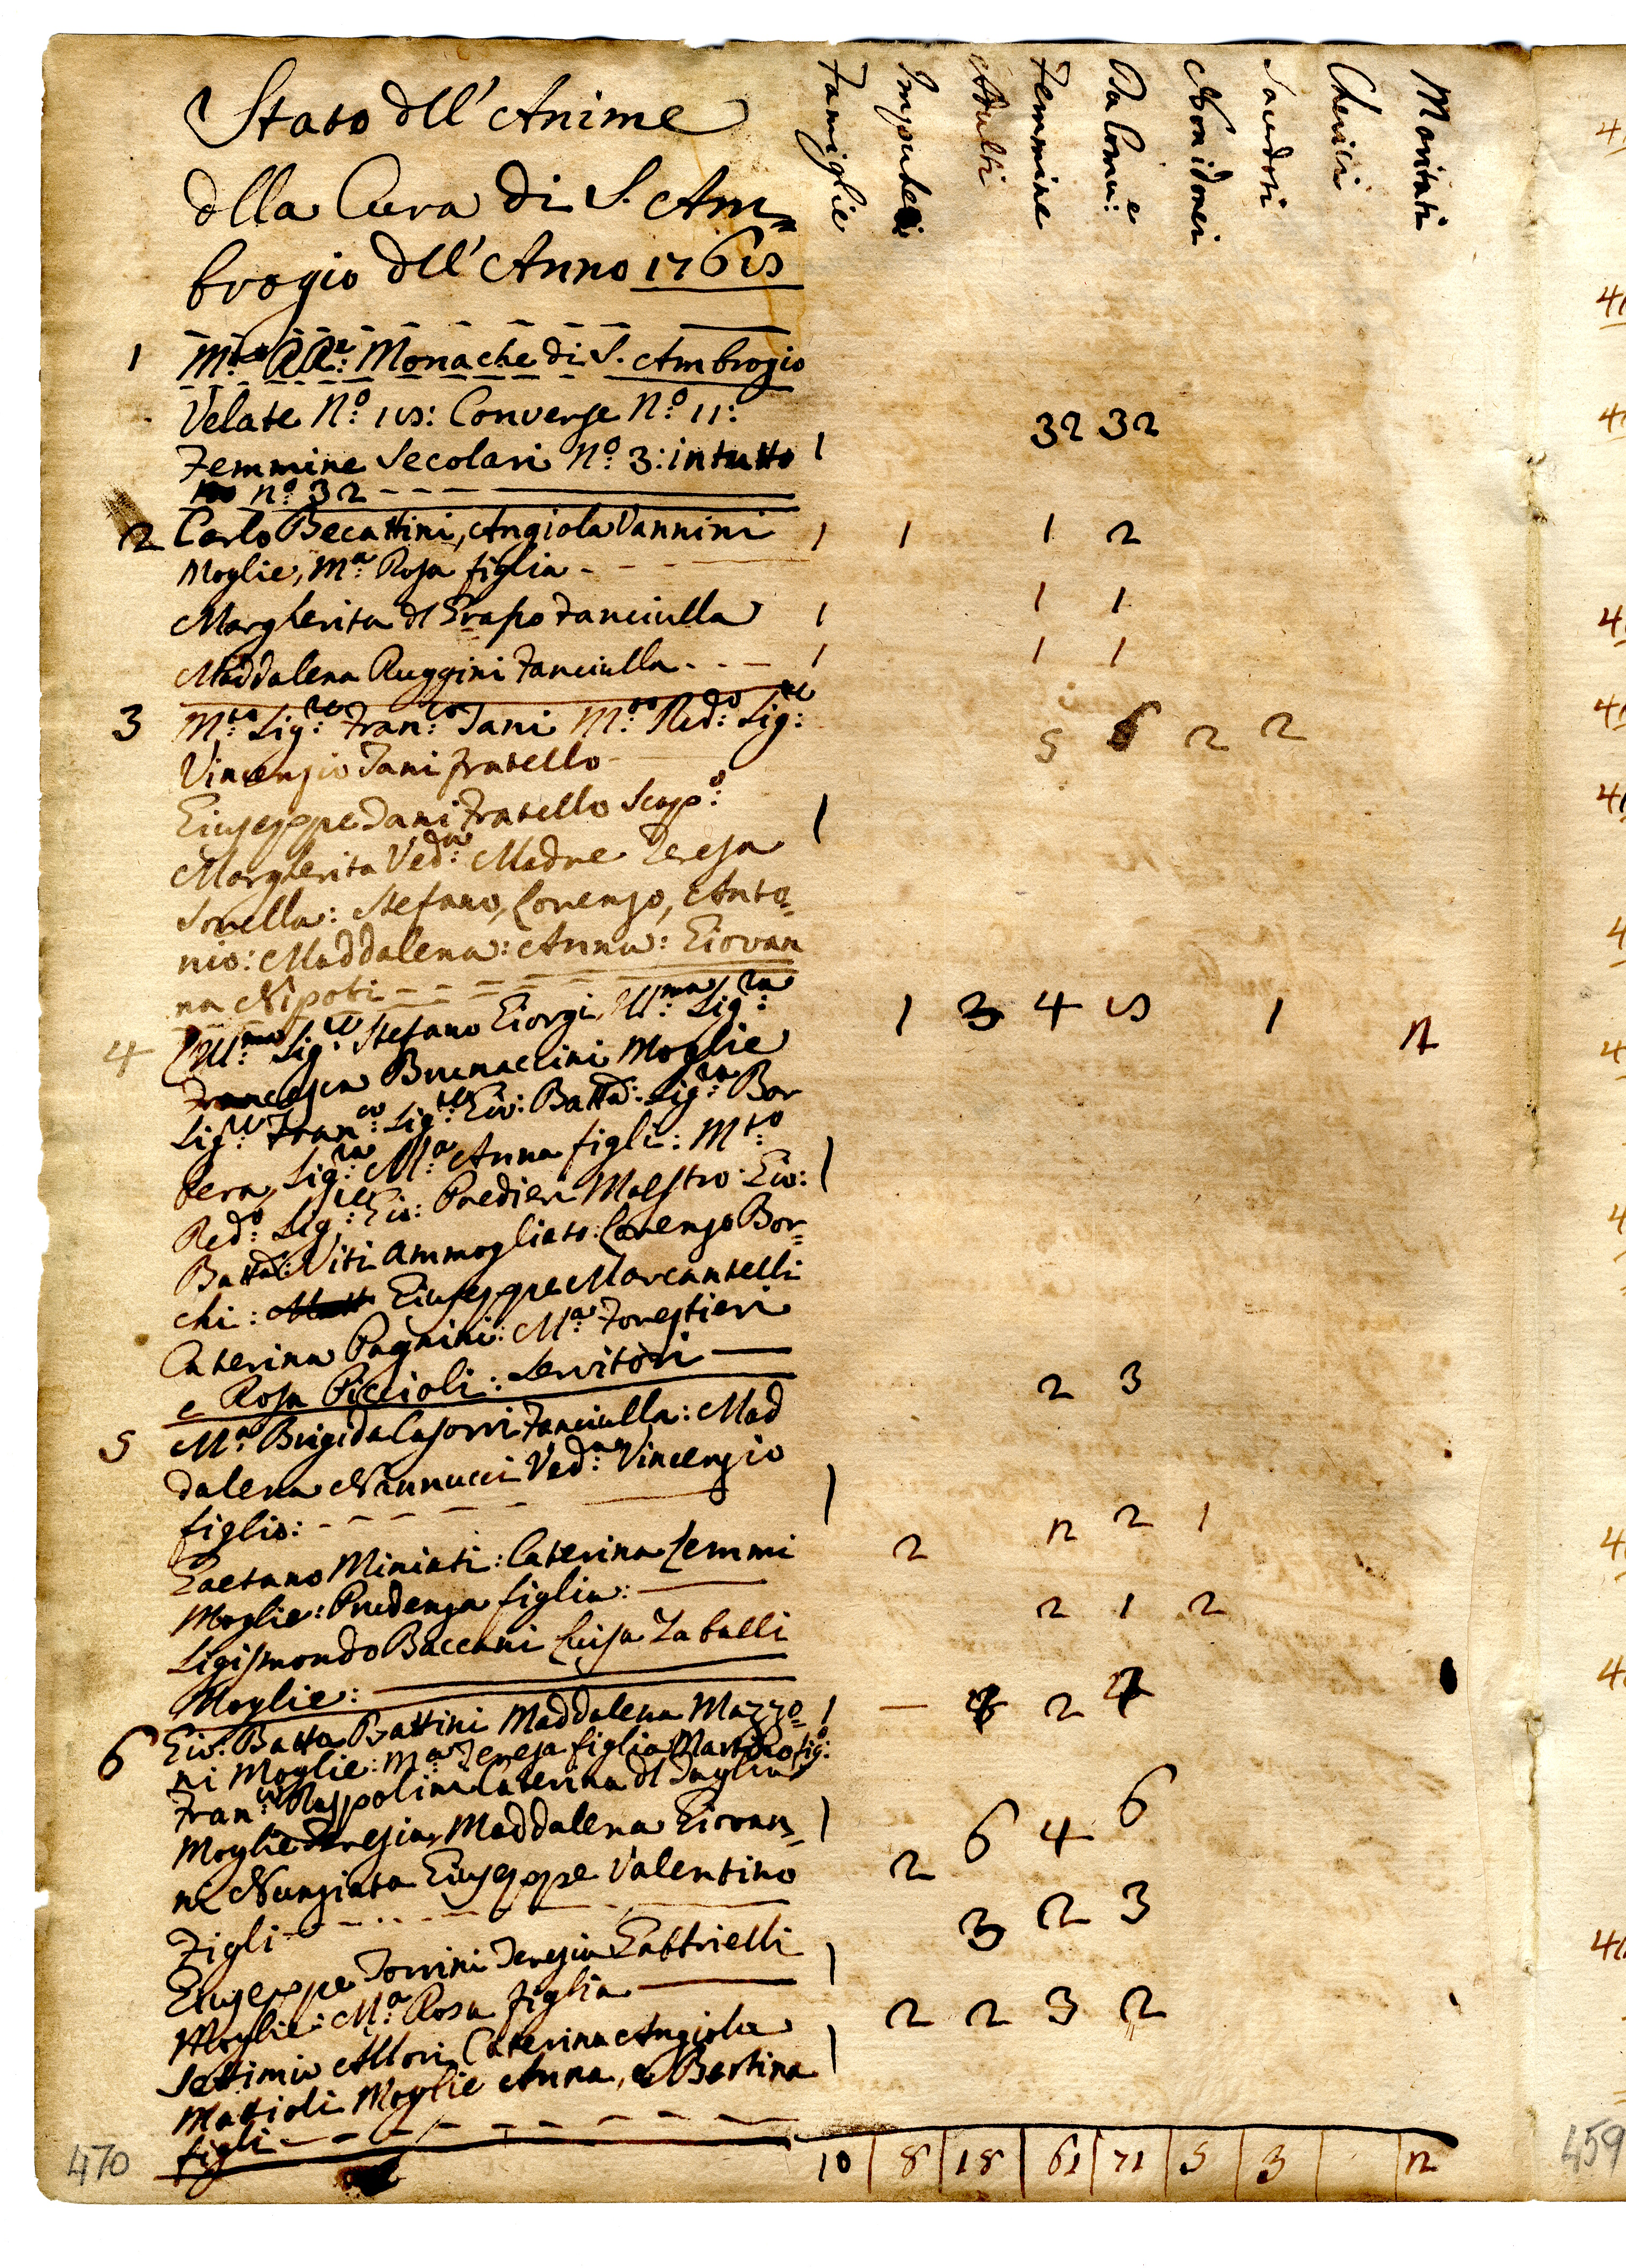 Stato dll' Anime
dlla Cura di S. Am=
brogio dll' Anno 1768
Famiglie Impuberi Adulti Femmine Da Comu:e Non idonei Sacerdoti Cherici Maritati
1 M:to RR:e Monache di S. Ambrogio
Velate N:o 18: Converse N:o 11:
Femmine Secolari N:o 3: in tutto 1 32 32
n:o 32
2 Carlo Becattini, Angiola Vannini 1 1 1 2
Moglie, M:a Rosa figlia
Margherita dl Grapo Fanciulla 1 1 1
Maddalena Ruggini Fanciulla 1 1 1
3 M:to Sig:re Fran:co Tani M:to Red:o Sig:re 5 6 2 2
Vincenzio Tani fratello
Giuseppe Tani Fratello Scap:o 1
Margherita Ved:a Madre Teresa
Sorella: Stefano, Lorenzo, Anto=
nio: Maddalena: Anna: Giovan
na Nipoti
4 Ill:mo Sig:re Stefano Giorgi, Ill:ma Sig:ra 1 3 4 8 1 2
Francesca Brunaccini Moglie
Sig:re Fran:co Sig:re Gio: Batta: Sig:ra Bar
bera, Sig:ra M:a Anna figli: M:to 1
Red:o Sig:re Gio: Paedieri Maestro: Gio:
Batta: Viti Ammogliato: Lorenzo Bor=
chi: Giuseppe Marcantelli
Caterina Pagnini: M:a Forestieri
e Rosa Piccioli: Servitori
5 M:a Brigida Casorri Fanciulla: Mad 2 3
dalena Nannucci Ved:a Vincenzio
figlio: 1
Gaetano Miniati: Caterina Lemmi 2 2 2 1
Moglie: Prudenza figlia:
Sigismondo Baccani Luisa Zaballi 2 1 2
Moglie:
6 Gio: Batta Battini Maddalena Mazzo= 1 2 4
ni Moglie: M:a Teresa figlia Martino fig:o
Fran:co Ruspolini Caterina dl Taglia
Moglie Teresia, Maddalena Giovan= 1 2 6 4 6
ni Nunziata Giuseppe Valentino
Figli
Giuseppe Torrini Teresia Gabbrielli 1 3 2 3
Moglie: M:a Rosa figlia
Settimio Allori Caterina Angiola 1 2 2 3 2
Mattioli Moglie Anna, e Bertina
figli
10 8 18 61 71 5 3 2
470
459